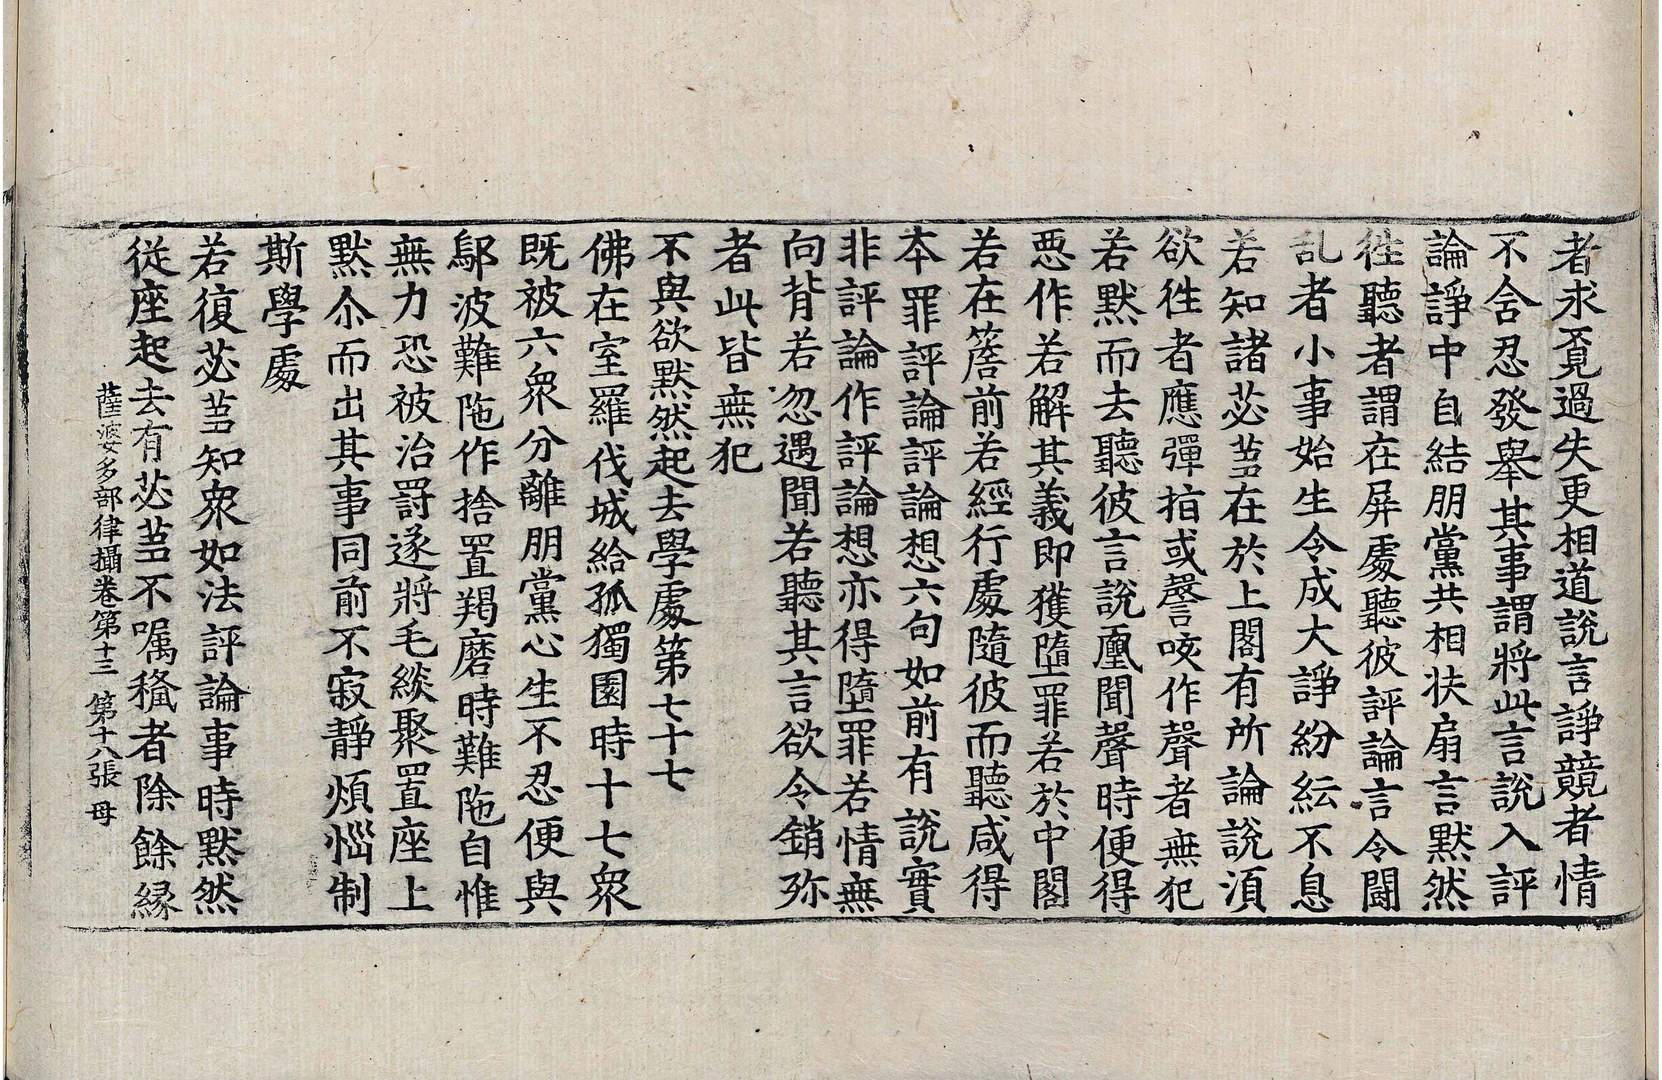 者求覔過失更相道說言諍競者情
不舍忍發舉其事謂將此言說入評
論諍中自結朋黨共相扶扇言默然
徃聽者謂在屏處聽彼評論言令鬪
乱者小事始生令成大諍紛紜不息
若知諸苾芻在於上閣有所論說湏
欲徃者應彈指或謦咳作聲者無犯
若默而去聽彼言說𢌞聞聲時便得
惡作若解其義即獲墮罪若於中閣
若在簷前若經行處隨彼而聽咸得
本罪評論評論想六句如前有說實
非評論作評論想亦得墮罪若情無
向背若忽遇聞若聽其言欲令銷弥
者此皆無犯
不與欲默然起去學處第七十七
佛在室羅伐城給孤獨園時十七衆
既被六衆分離朋黨心生不忍便與
鄔波難陁作捨置羯磨時難陁自惟
無力恐被治罰遂將毛緂聚置座上
默尒而出其事同前不寂靜煩惱制
斯學處
若復苾芻知衆如法評論事時默然
從座起去有苾芻不囑授者除餘縁
薩婆多部律攝卷第十三　第十八張　母